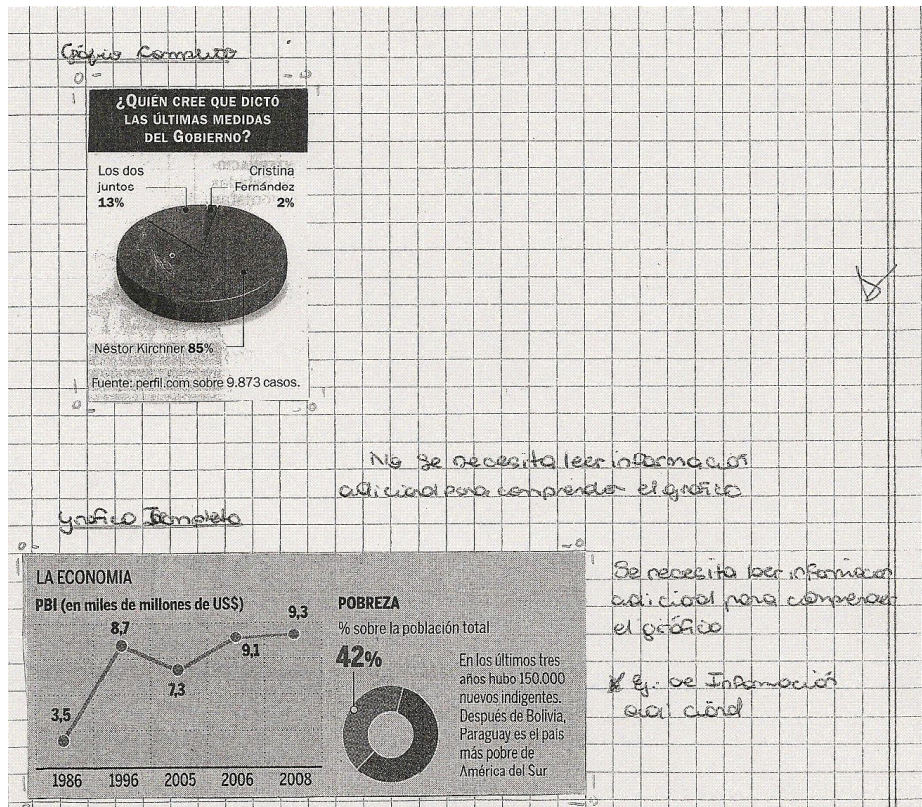 Gráfico Completo
¿QUIÉN CREE QUE DICTÓ
LAS ÚLTIMAS MEDIDAS
DEL GOBIERNO?
Los dos
juntos
13%
Cristina
Fernández
2%
Néstor Kirchner 85%
Fuente: perfil.com sobre 9.873 casos.
No se necesita leer informacion
adicional para comprender el gráfico
gráfico Incompleto
LA ECONOMIA
PBI (en miles de millones de US$)
3,5
8,7
7,3
9,1
9,3
1986 1996 2005 2006 2008
POBREZA
% sobre la población total
42%
En los últimos tres
años hubo 150.000
nuevos indigentes.
Después de Bolivia,
Paraguay es el país
más pobre de
América del Sur
Se necesita leer informacion
adicional para comprender
el gráfico
Ej. de Información
adicional